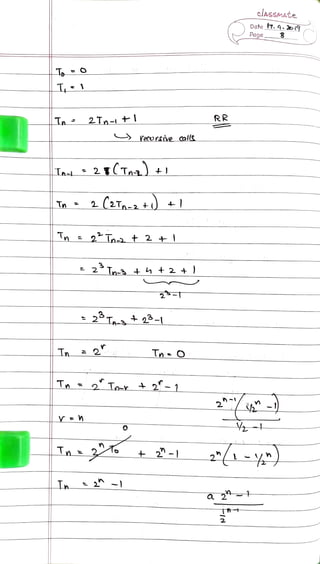 classmate
Date 17.9.2019
Page 8
T₀ = 0
T₁ = 1
Tₙ = 2Tₙ₋₁ + 1 RR
↳ recursive calls
Tₙ₋₁ = 2 (Tₙ₋₂) + 1
Tₙ = 2 (2Tₙ₋₂ + 1) + 1
Tₙ = 2² Tₙ₋₂ + 2 + 1
= 2³ Tₙ₋₃ + 4 + 2 + 1
2³ - 1
= 2³ Tₙ₋₃ + 2³ - 1
Tₙ = 2ʳ Tₙ = 0
Tₙ = 2ʳ Tₙ₋ᵣ + 2ʳ - 1
2ⁿ⁻¹ (1/2ⁿ - 1)
1/2 - 1
r = n
0
Tₙ = 2ⁿ T₀ + 2ⁿ - 1 2ⁿ (1 - 1/2ⁿ)
Tₙ = 2ⁿ - 1
a 2ⁿ - 1